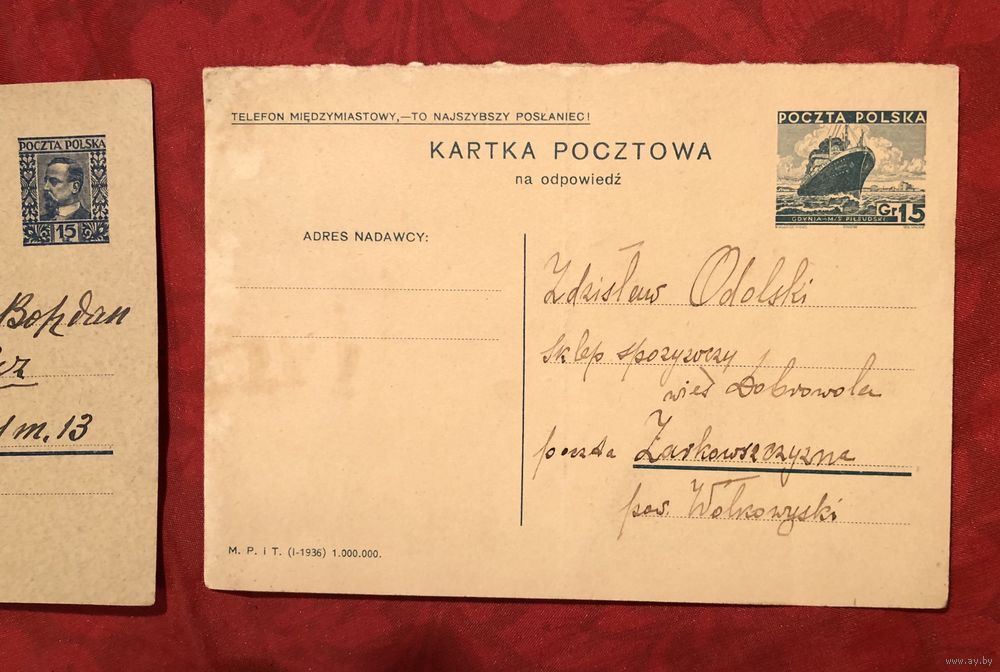 POCZTA POLSKA
15
Bohdan
m. 13
TELEFON MIĘDZYMIASTOWY,—TO NAJSZYBSZY POSŁANIEC!
KARTKA POCZTOWA
na odpowiedź
POCZTA POLSKA
GDYNIA—M/S PIŁSUDSKI
Gr 15
ADRES NADAWCY:
Zdzisław Odolski
sklep spożywczy
wieś Dobrowola
poczta Zarkowszczyzna
pow. Wołkowyski
M. P. i T. (I-1936) 1.000.000.
www.ay.by